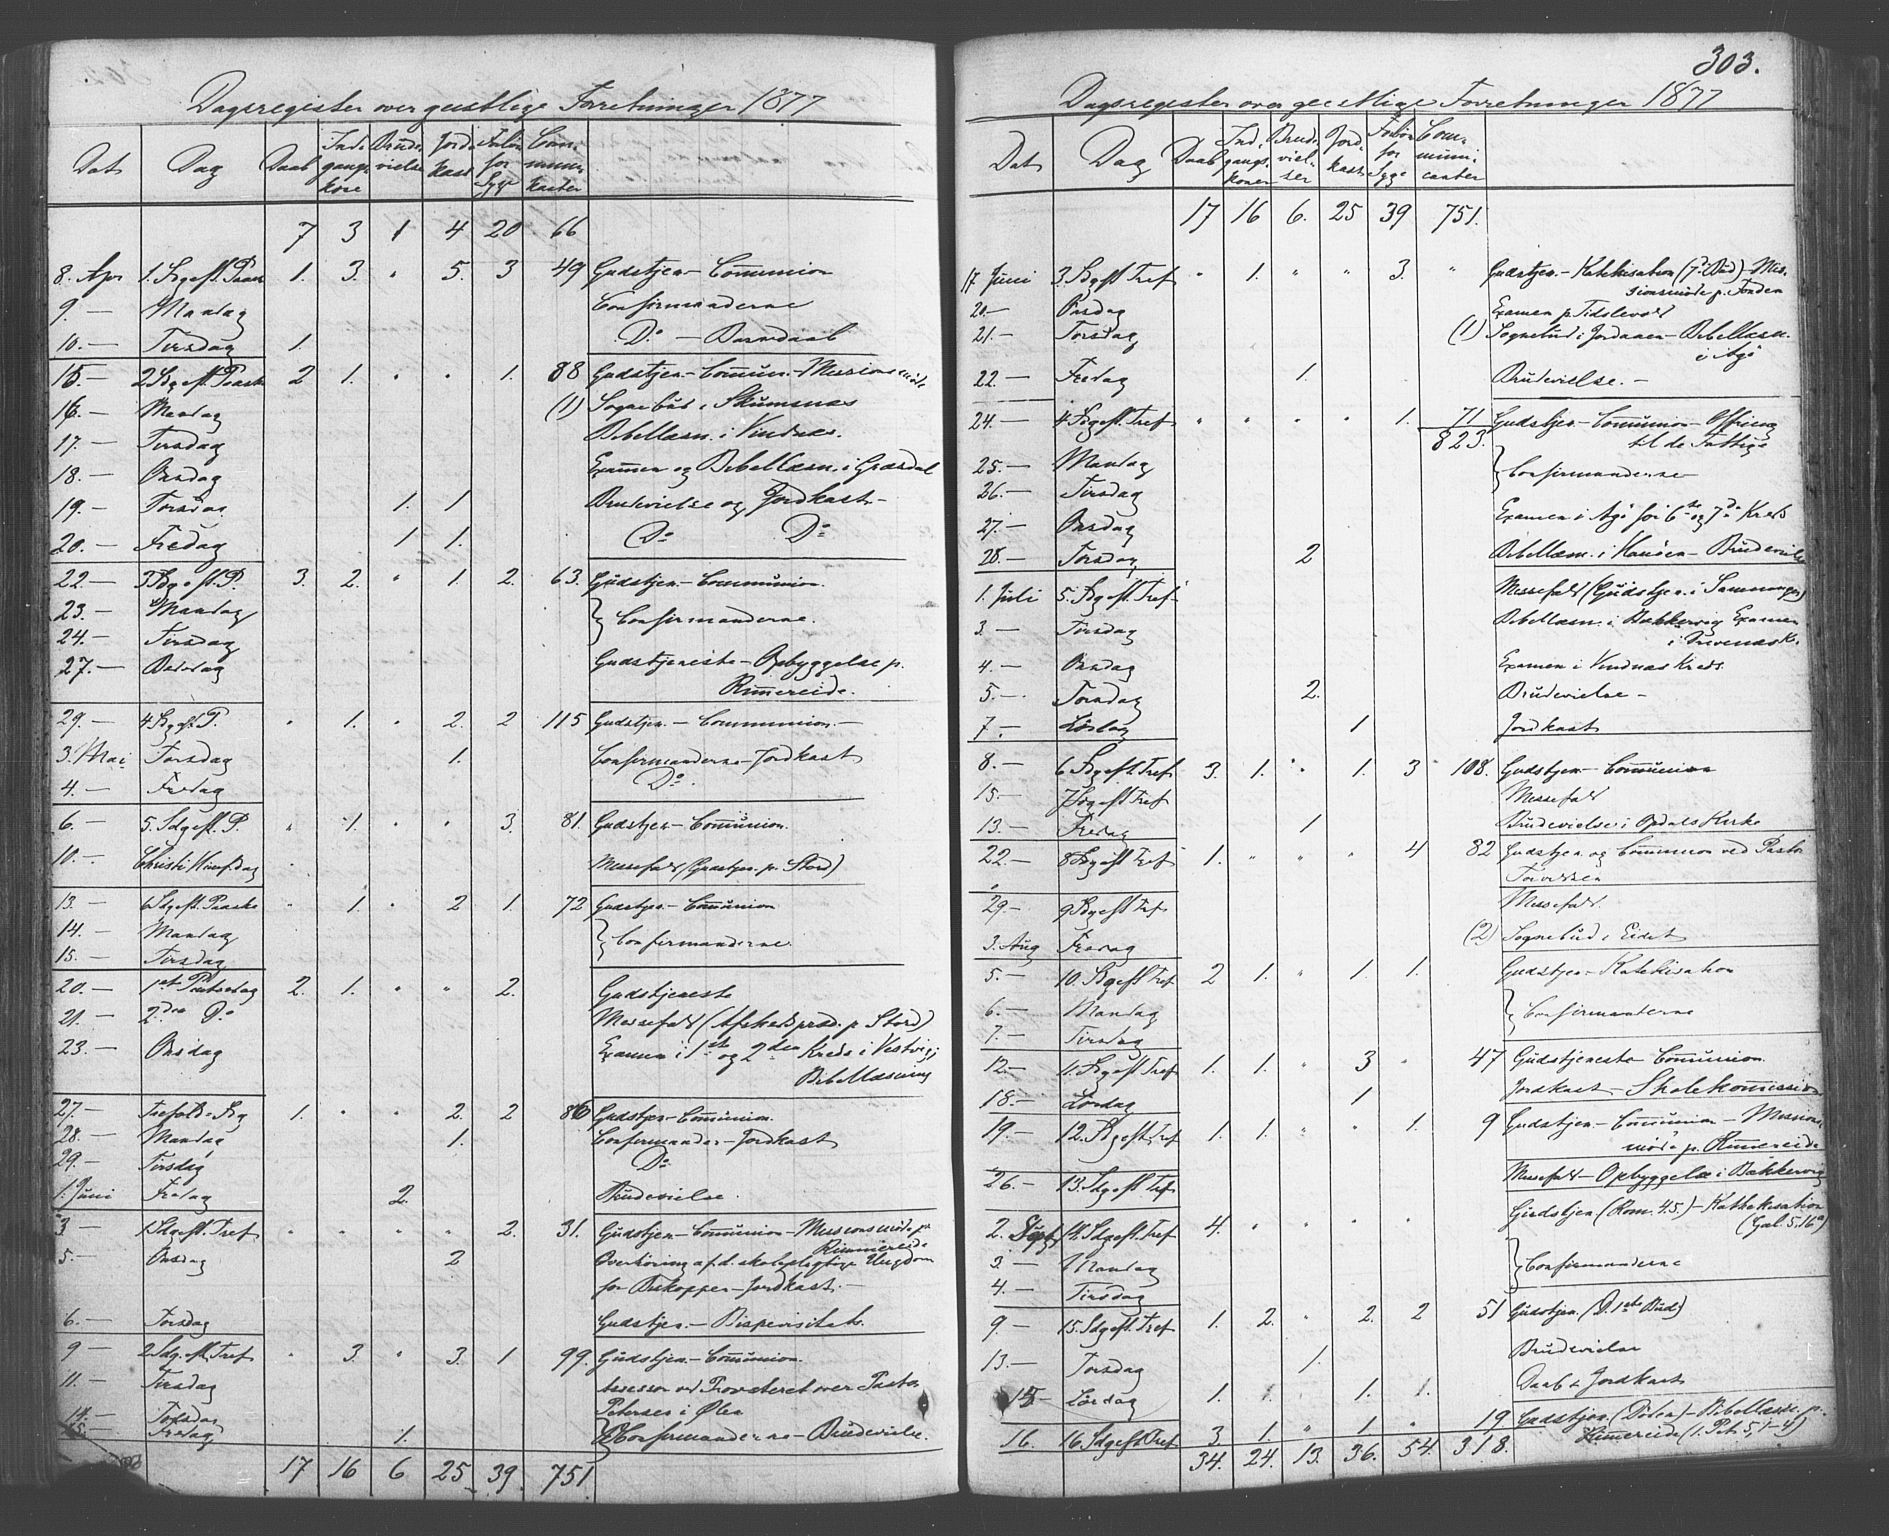 Dagsregister over geistlige Forretninger 1877
Dat Dag Daab Ind- gangs- kone Brude- vielse Jord- kast for Syge Com- muni- kanter
7 3 1 4 20 66
8. Apr 1. Sdg eft. Paas 1. 3. " 5. 3 49 Gudstjen.- Communion
9. — Mandag Confirmanderne
10. — Tirsdag 1. Do — Barnedaab
15. — 2 Sdg eft. Paaske 2 1. " " 1. 88 Gudstjen- Commun.- Missionsmøde
16. — Mandag (1) Sognebud i Skumsnæs
17. — Tirsdag Bibellæsn. i Vindnæs.
18. — Onsdag Examen og Bibellæsn. i Græsdal
19. — Torsdag 1. 1. Brudevielse og Jordkast —
20. — Fredag 1 1. Do Do
22 — 3 Sdg eft. P. 3. 2. " 1. 2. 63. Gudstjen.- Communion.
23. — Mandag } Confirmanderne.
24. — Tirsdag
27. — Gudstjeneste - Opbyggelse p.
Rimereide.
29. — 4 Sdg eft. P. " 1. " 2. 2 115 Gudstjen. - Communion. -
3. Mai Torsdag 1. Confirmanderne - Jordkast
4. — Fredag Do
6. — 5. Sdg eft. P. " 1. " " 3. 81. Gudstjen- Communion.
10. — Christi Himf.dag Messefald (Gudstjen. p. Stord)
13. — 6 Sdg eft. Paaske " 1. " 2 1. 72 Gudstjen- Communion
14. — Mandag } Confirmanderne.
15. — Tirsdag
20. — 1ste Pintsedag 2. 1. " " 2. Gudstjeneste
21. — 2den Do Messefald (Afskedspræd. p. Stord)
23. — Onsdag Examen i 1ste og 2den Kreds i Vestvig
Bibellæsning
27. — Trefold. Sdg 1. " " 2. 2 86 Gudstjen- Communion.
28. — Mandag 1. Confirmander - Jordkast
29. — Tirsdag Do
1. Juni Fredag 2. Brudevielse.
3 — 1 Sdg eft. Tref " " " " 2. 31. Gudstjen- Communion - Missionsmøde p.
Rimmereide
5. — Onsdag 2 Overhøring af d. skolepligtige Ungdom
for Biskoppen - Jordkast. -
6. — Torsdag Gudstjen.- Bispevisitats.
9 — 2 Sdg. eft. Tref " 3. " 3. 1 99. Gudstjen- Communion.
11. — Tirsdag Assessor ved Provsteret over Pastor
14. — Torsdag Petersen i Ølen
15. — Fredag 1. Confirmanderne - Brudevielse.
17 16 6 25. 39. 751
303.
Dagsregister over geistlige Forretninger 1877
Dat Dag Daab Ind- gangs- koner Brude- viel- ser Jord- kast for Syge Com- muni- canter
17 16 6. 25 39 751.
17 Juni 3. Sdg eft Tref " 1. " " 3. " Gudstjen.- Katekisation (7. Bud) - Mis-
sionsmøde p. Fonden
20. — Onsdag Examen p. Tidslevold
21. — Torsdag (1) Sognebud i Jordanen - Bibellæsn.
i Agø
22. — Fredag 1. Brudevielse. -
24. — 4 Sdg eft. Tref " " " " 1. 71 Gudstjen- Communion - Offring
823. til de Fattige
25. — Mandag } Confirmanderne
26. — Tirsdag
27. — Onsdag Examen i Agø for 6te og 7de Kreds
28. — Torsdag 2 Bibellæsn. i - Brudevielse
1. Juli 5. Sdg eft. Tref Messefald (Gudstjen. i Samnanger)
3. — Tirsdag Bibellæsn. i Bækkervig Examen
i
4. — Onsdag Examen i Vindnæs Kreds.
5. — Torsdag 2. Brudevielse -
7. — Lørdag 1 Jordkast
8. — 6 Sdg eft. Tref 3. 1. " 1. 3 108. Gudstjen- Communion
15. — 7 Sdg eft Tref Messefald
13. — Fredag 1 Brudevielse i Opdals Kirke
22. — 8 Sdg eft Tref 1. " " " 4 82 Gudstjen. og Communion ved Pastor
29. — 9 Sdg eft Tref Messefald.
3. Aug Fredag (2) Sognebud i Eidet
5. — 10. Sdg eft Tref 2 1. " 1. 1. Gudstjen- Katekisation
6. — Mandag } Confirmanterne
7. — Tirsdag
12. — 11. Sdg eft Tref 1. 1. " 3 " 47 Gudstjeneste Communion.
18. — Lørdag 1 Jordkast - Skolekommission
19. — 12. Sdg eft. Tref 1. 1. " " 1. 9 Gudstjen - Communion - Missions-
møde p. Rimereide
26. — 13. Sdg eft Tref Messefald - Opbyggelse i Bækkervig
2. Sept 14. Sdg eft. Tref 4. " " " " Gudstjen (Rom. 4.5.) - Kathekisation
(Gal. 5.16)
3. — Mandag } Confirmanderne
4. — Tirsdag
9 — 15. Sdg eft. Tref 1. 2. " 2. 2 51 Gudstjen. (D. 1ste Bud)
13. — Torsdag 1. Brudevielse
15 — Lørdag 1. 1. 1. 1. Daab & Jordkast
16. 16 Sdg eft Tref 3 1. " 1 " 19. Gudstjen. (Døden) - Bibellæsn. p.
Rimereide (1. Pet. 5, 1-4)
34. 24. 13. 36. 54. 318.